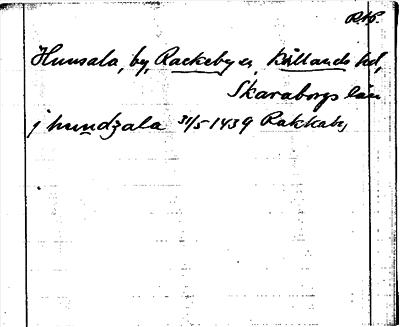 Hunsala, by, Rackeby sn, Kållands hd,
Skaraborgs län
j hundzala 31/5 1439 Rakkaby